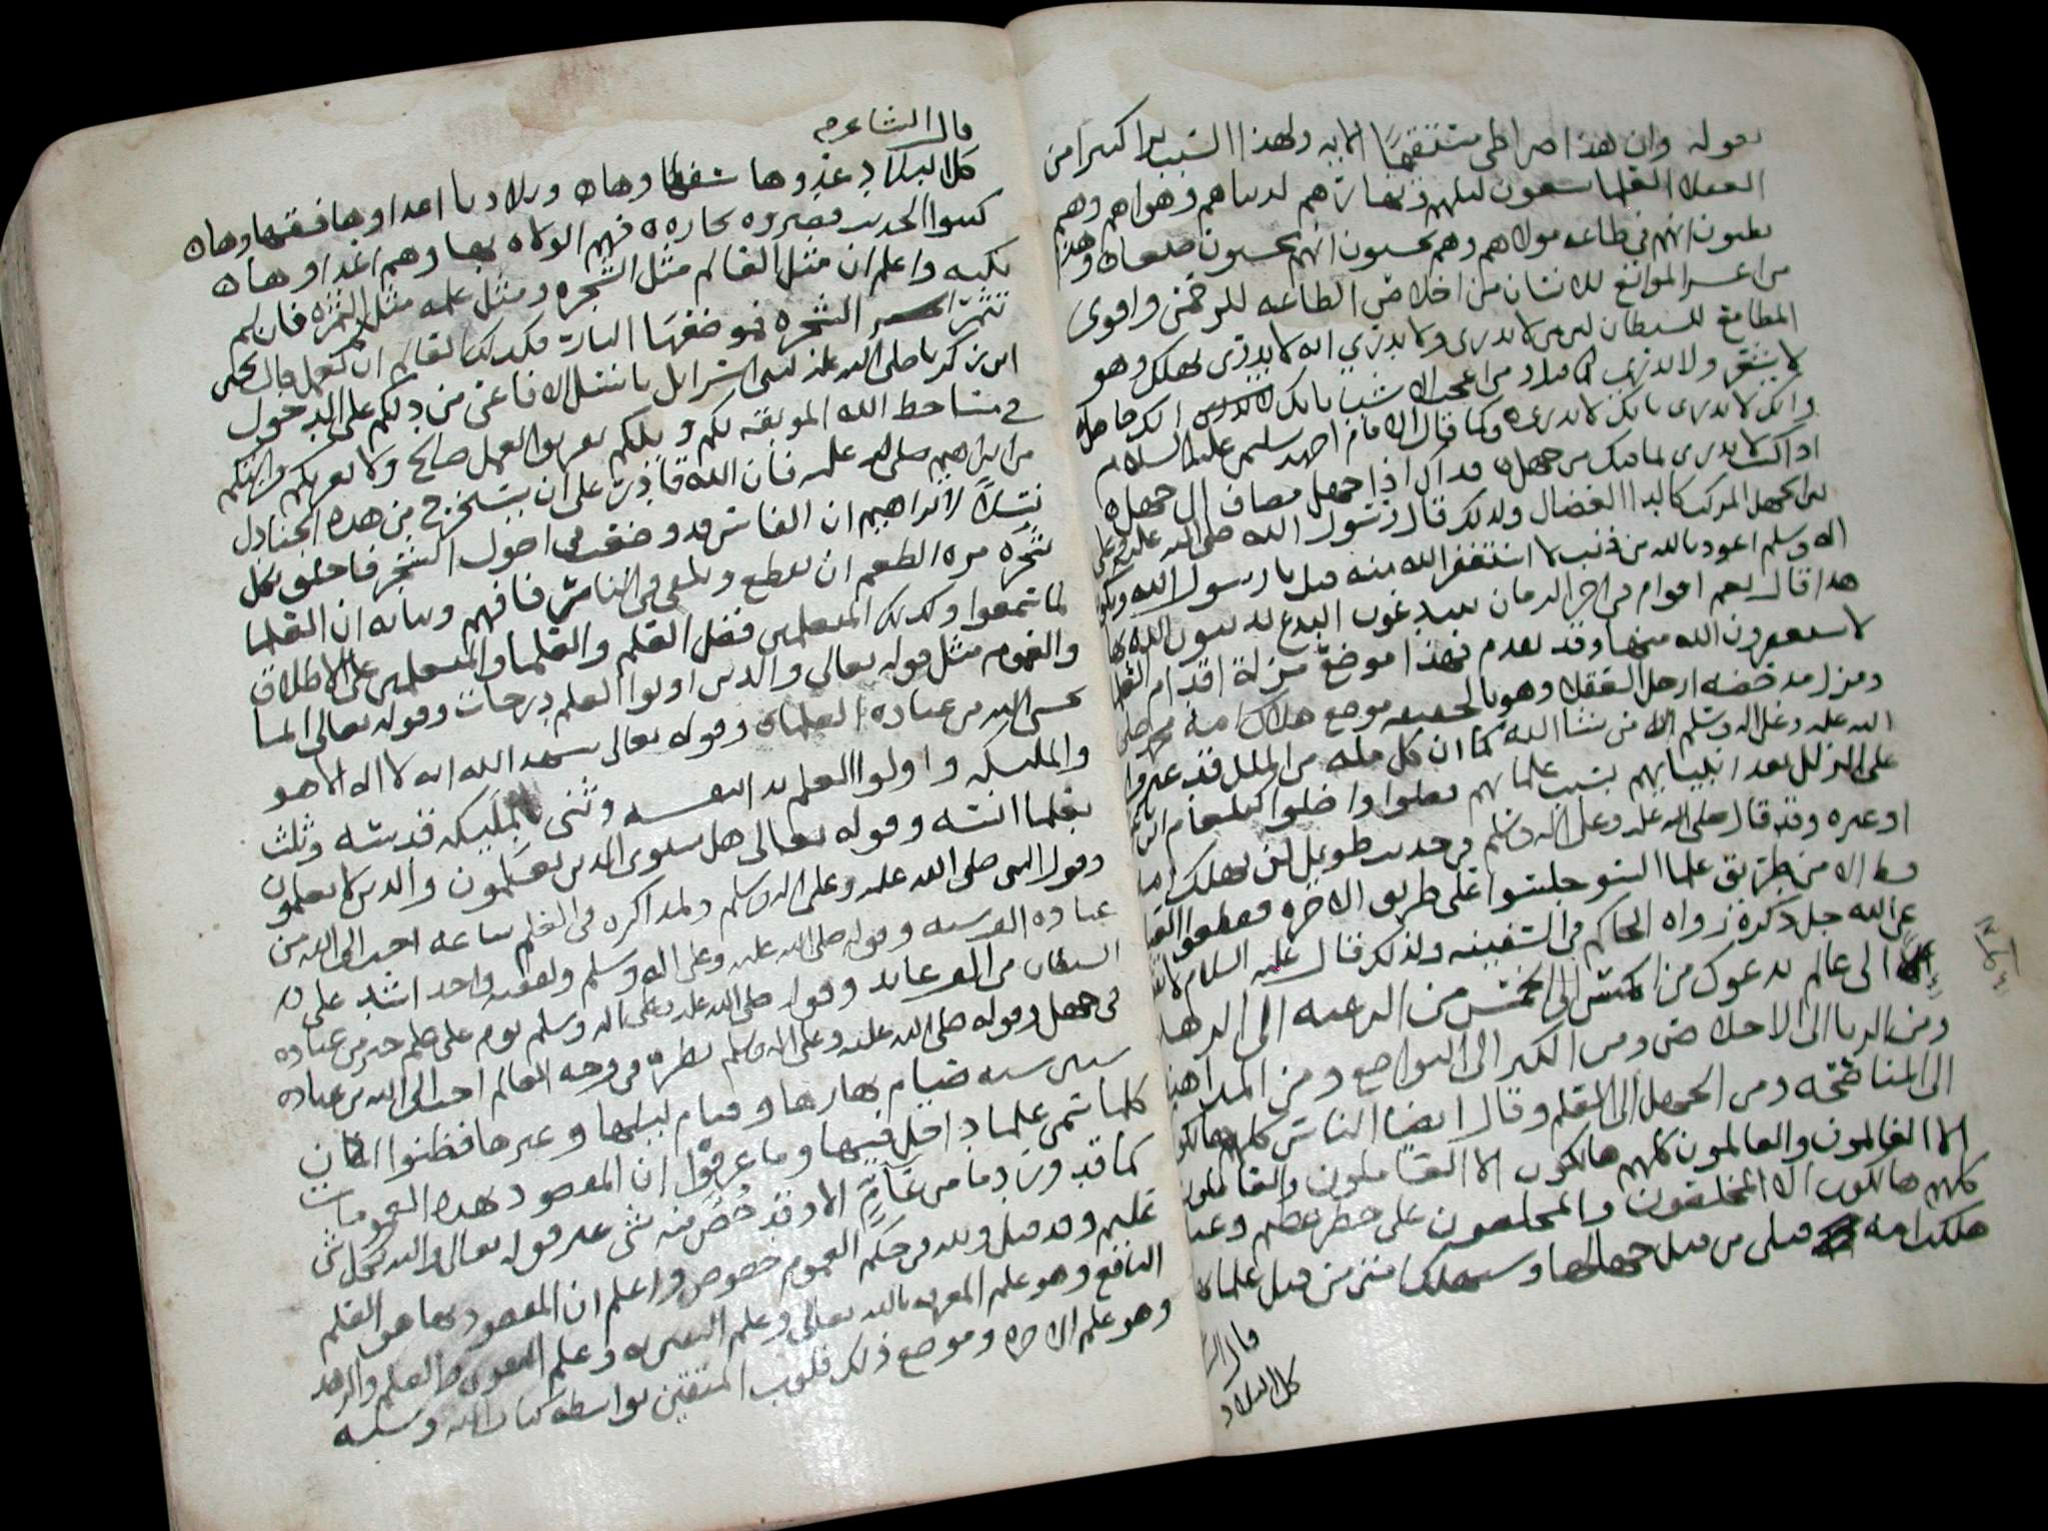 بقوله وان هذا صراطي مستقيما الايه ولهذا السبب ترا كثيرا من
العقلا العلما يسعون ليلهم ونهارهم لدنياهم وهواهم وهم
يظنون انهم في طاعه مولاهم وهم يحسبون انهم يحسنون صنعا وهذا
من اعسر الموانع للانسان من اخلاص الطاعه للرحمن واقوى
المطامع للشيطان لمن لا يدرى ولا يدري انه لا يدرى يهلك وهو
لا يشعر من اعجب الاشيا بانك
وانك لا تدرى بانك لا تدرى وكما قال الامام احمد بن سليمن عليه السلام
اذا كنت لا تدرى بما فيك من جهل فذاك اذا جهل مضاف الى جهل
من الجهل المركب كالداء العضال ولذلك قال رسول الله صلى الله عليه وعلى
اله وسلم اعوذ بالله من ذنب لا استغفر الله منه قيل يا رسول الله ويكون
هذا قال نعم اقوام في اخر الزمان يبتدعون البدع يدينون الله بها
لا يستغفرون الله منها وقد تقدم فهذا موضع مزلة اقدام العلما
ومنزل مدحضه ارجل العقلا وهو بالحقيقه موضع هلاك امة محمد صلى
الله عليه وعلى اله وسلم الا من شا الله كما ان كل مله من الملل قد
على الزلل بعد انبيايهم بسبب علمايهم فضلوا واضلوا كبلعام
او غيره وقد قال صلى الله عليه وعلى اله وسلم في حديث طويل لن تهلك
قط الا من طريق علما السو جلسوا على طريق الاخره فقطعوا
عن الله جل ذكره رواه الحاكم في السفينه ولذلك قال عليه السلام لا
الى عالم يدعوك من الى الخمس من الرغبه الى الزهد
ومن الريا الى الاخلاص ومن الكبر الى التواضع ومن المداهنه
الى المناصحه ومن الجهل الى العلم وقال ايضا الناس كلهم هالكون
الا العالمون والعالمون كلهم هالكون الا العاملون والعاملون
كلهم هالكون الا المخلصون والمخلصون على خطر عظيم وعنه
هلكت امه قبلى من قبل جهالها وستهلك امتى من قبل علماها
قال
كل البلاد
قال الشاعر
كل البلاد عدوها سفهاوها وبلادنا اعداوها فقهاوها
كتبوا الحديث فصيروه تجاره فهم الولاه بها وهم اعداوها
تكنيه واعلم ان مثل العالم مثل الشجره ومثل علمه مثل الثمره فان لم
تثمر الشجره فموضعها النار فكذلك العالم ان لم يعمل قال يحيى
ابن زكريا صلى الله عليه لبنى اسرائل يا نسل الافاعى من دلكم على الدخول
في مساخط الله الموبقه لكم ويلكم تقربوا بعمل صالح ولا تغركم قرابتكم
من ابراهيم صلى الله عليه فان الله قادر على ان يستخرج من هذه الجنادل
نسلا لابراهيم ان الفاس قد وضعت في اصول الشجر فاخلق بكل
شجره مره الطعم ان تقطع وتلقى في النار فافهم وبيانه ان العلما
لما سمعوا وكذلك المتعلمين فضل العلم والعلما والمتعلمين على الاطلاق
والعموم مثل قوله تعالى والذين اوتوا العلم درجات وقوله تعالى انما
يخشى الله من عباده العلماء وقوله تعالى شهد الله انه لا اله الا هو
والمليكه واولوا العلم بدا بنفسه وثنى بمليكه قدسه وثلث
بعلما انسه وقوله تعالى هل يستوى الذين يعلمون والذين لا يعلمون
وقول النبى صلى الله عليه وعلى اله وسلم ولمذاكره في العلم ساعه احب الى الله من
عباده وقوله صلى الله عليه وعلى اله وسلم ولفقيه واحد اشد على
الشيطان من الف عابد وقوله صلى الله عليه وعلى اله وسلم نوم على علم خير من عباده
في جهل وقوله صلى الله عليه وعلى اله وسلم نظره في وجه العالم احب الى الله من عباده
ستين سنه صيام نهارها وقيام ليلها وغيرها فظنوا ان
كلما سمى علما داخل فيها وما عرفوا ان المقصود بهذه العمومات
كما قد ورد ما من عام الا وقد خص منه شى غير قوله تعالى والله بكل شى
عليم وقد قيل ولله في حكم العموم خصوص واعلم ان المقصود بها هو العلم
النافع وهو علم المعرفه بالله تعالى وعلم وعلم التقوى والعلم والزهد
وهو علم الاخره وموضع ذلك قلوب المتقين بواسطه كتاب الله وسنه